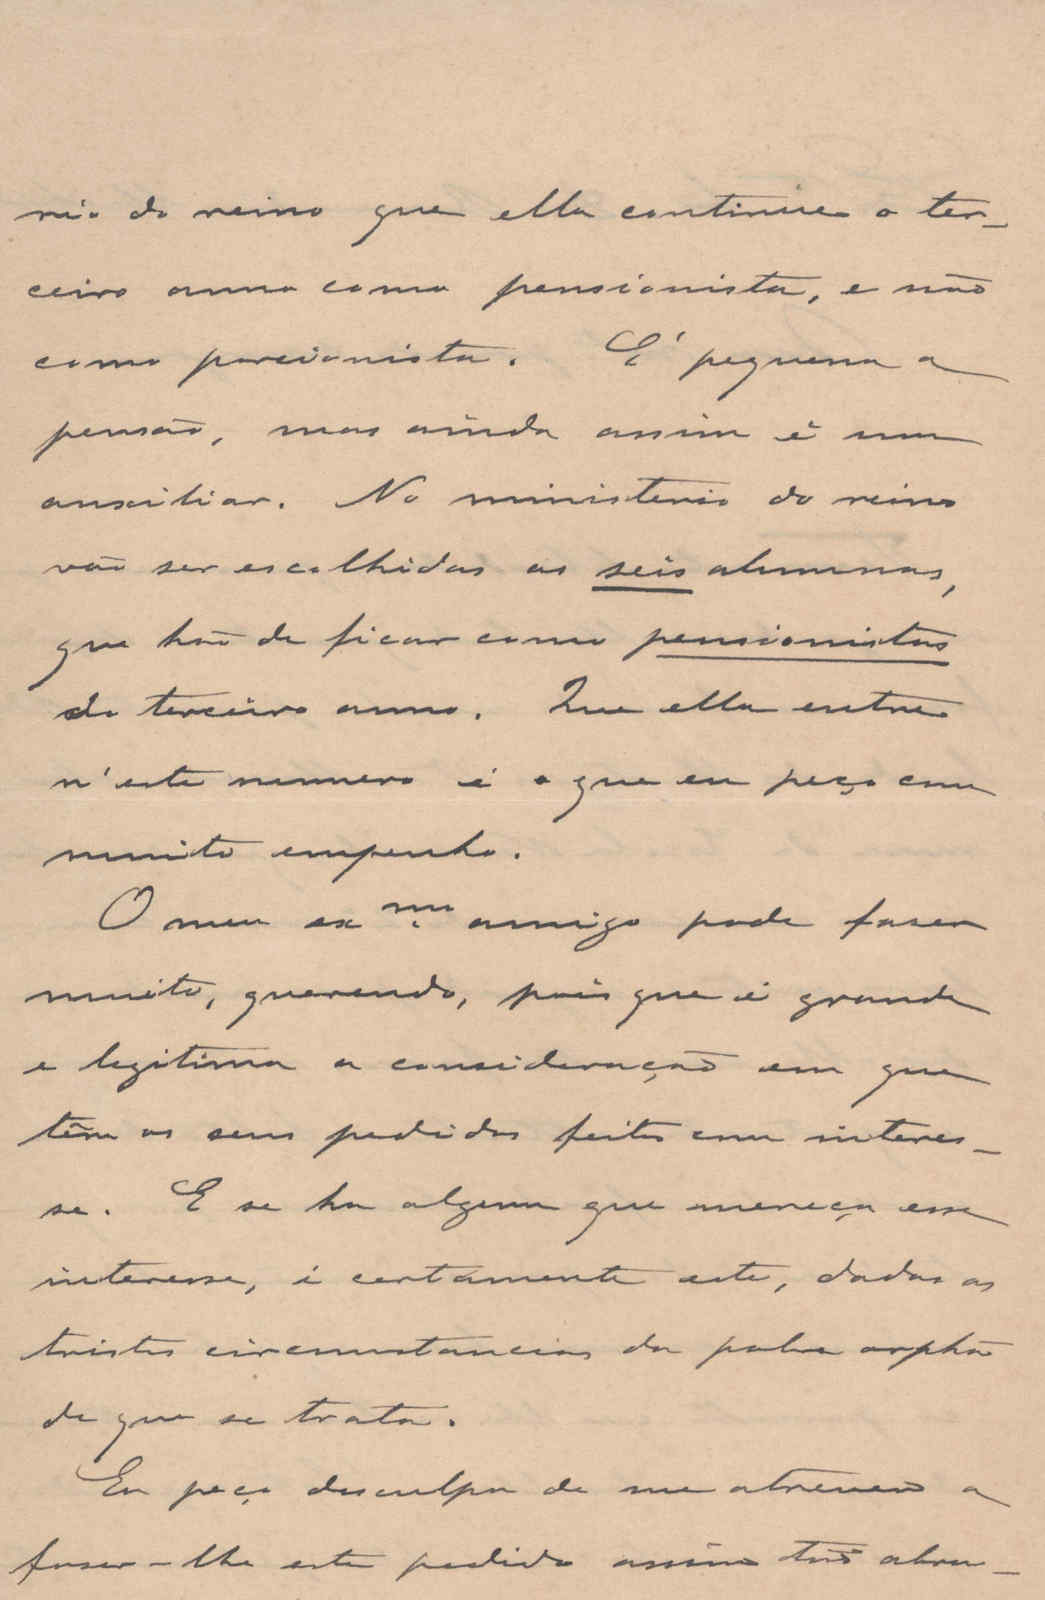 rio do reino que ella continue o ter-
ceiro anno como pensionista, e não
como porcionista. É pequena a
pensão, mas ainda assim é um
auxiliar. No ministerio do reino
vão ser escolhidas as seis alumnas,
que hão de ficar como pensionistas
do terceiro anno. Que ella entre
n'este numero é o que eu peço com
muito empenho.
O meu ex.mo amigo pode faser
muito, querendo, pois que é grande
e legitima a consideração em que
têm os seus pedidos feitos com interes-
se. E se ha algum que mereça esse
interesse, é certamente este, dadas as
tristes circumstancias da pobre orphã
de que se trata.
Eu peço desculpa de me atrever a
faser-lhe este pedido assim tão abru-